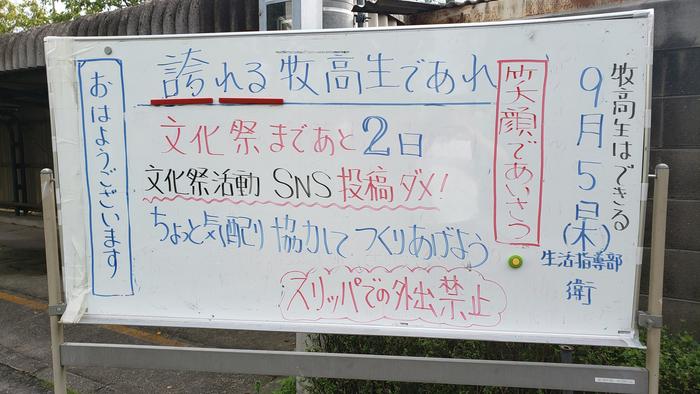 牧高生はできる
9月5日(木)
生活指導部
衛
笑顔であいさつ
誇れる牧高生であれ
文化祭まであと2日
文化祭活動 SNS 投稿ダメ!
ちょっと気配り協力してつくりあげよう
スリッパでの外出禁止
おはようございます